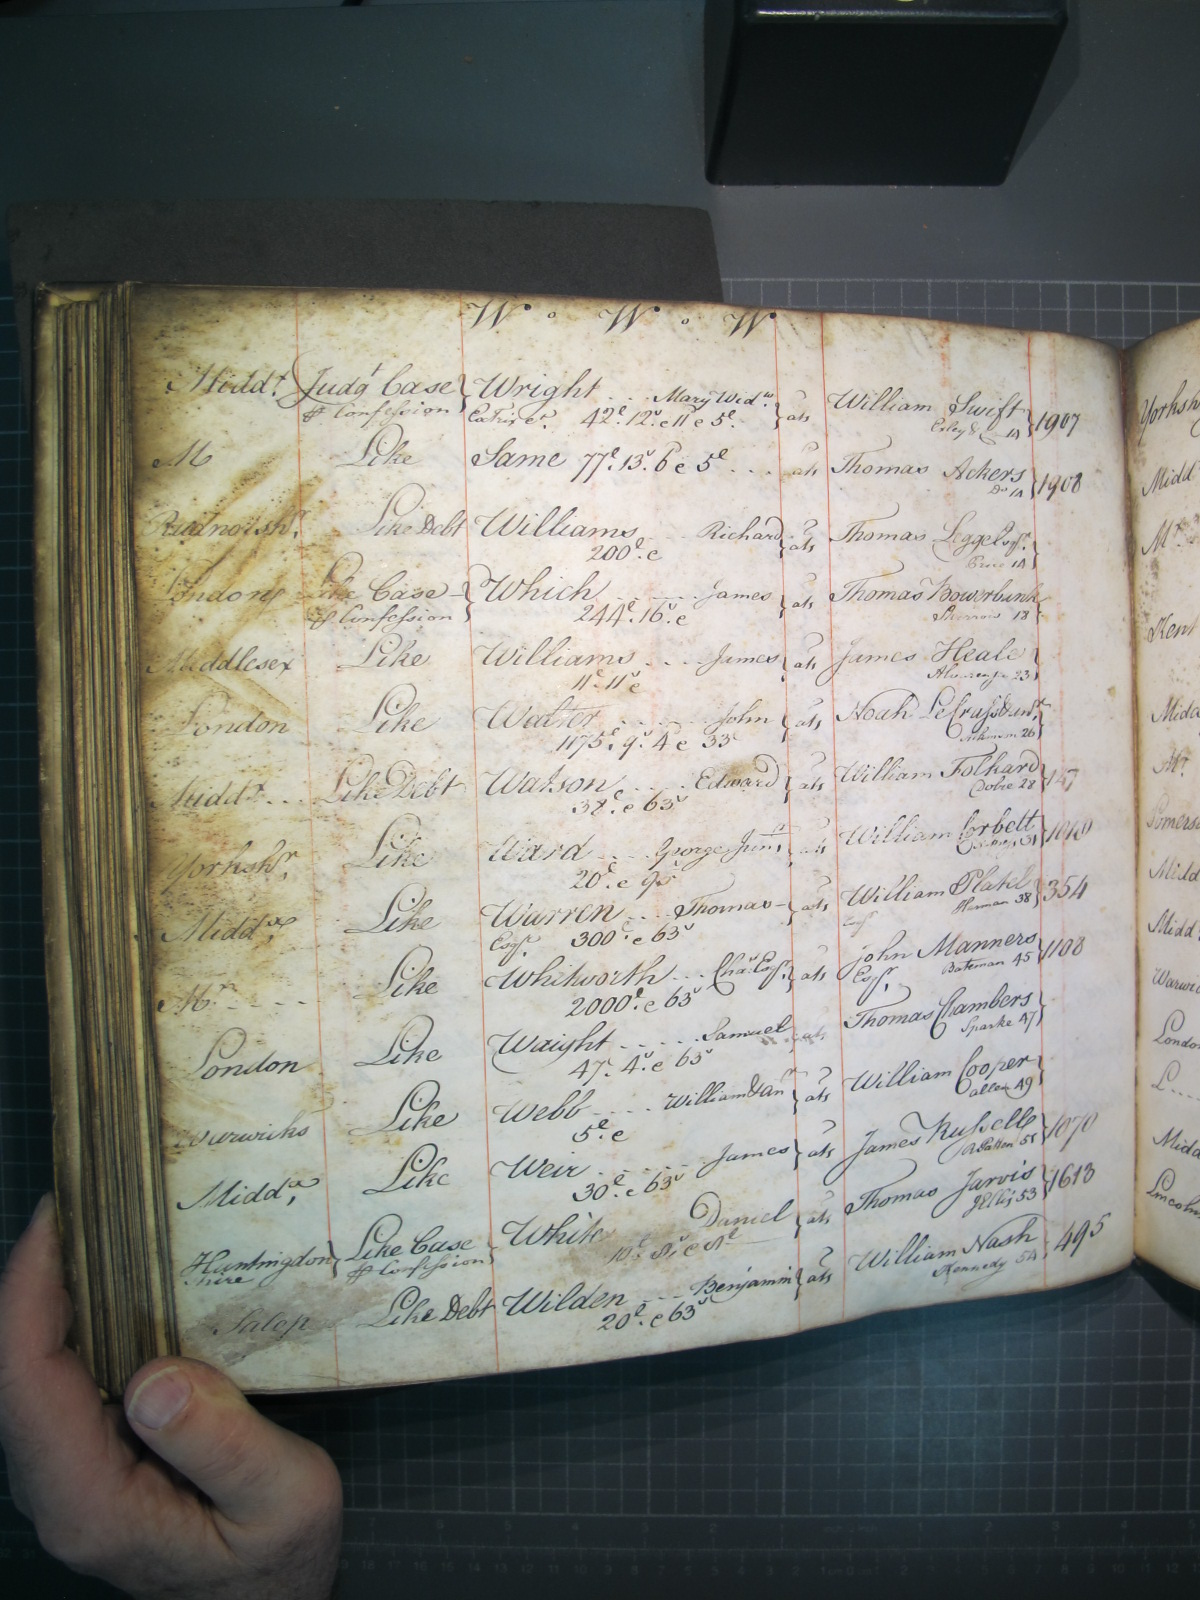 W o W o W
Midd.x Judg.t Case Wright ... Mary Wid.w ats William Swift 1907
Confession 42.l 12.s 11 e 5.l 1A
M Like Same 77.l 13.s 6 e 5.l ... ats Thomas Ackers 1908
1A
Radnorsh.r Like Debt Williams Richard ats Thomas Legge Esq.r
200.l e 1A
London Like Case Which ... James ats Thomas Bowerbank
Confession 244.l 16.s e 18
Middlesex Like Williams ... James ats James Heale
11.l 11.s e 23
London Like Walter ... John ats Noah
1175.l 9.s 4 e 33.s 26
Midd.x ... Like Debt Watson ... Edward ats William Folkard 147
38.l e 63.s Dobie 28
Yorksh.r Like Ward ... George Jun.r ats William Corbett
20.l e 31
Midd.x Like Warren ... Thomas ats William Platel 354
Esq.r 300.l e 63.s Herman 38
M.r ... Like Whitworth ... Cha.s Esq.r ats John Manners 1108
2000.l e 63.s Esq.r Bateman 45
London Like Waight ... Samuel ats Thomas Chambers
47.l 4.s e 63.s Sparke 47
Warwicks Like Webb ... William & an.r ats William Cooper
5.l e Callen 49
Midd.x Like Weir ... James ats James Russell 1070
30.l e 63.s 51
Huntingdon Like Case White Daniel ats Thomas Jarvis 1613
shire Confession 10.l JEllis 53
Salop Like Debt Wilden ... Benjamin ats William Nash 495
20.l e 63.s Kennedy 54
Yorksh
Midd
M.r
Kent
Midd
M.r
Somerse
Midd
Midd
Warwi
London
L
Midd
Lincoln